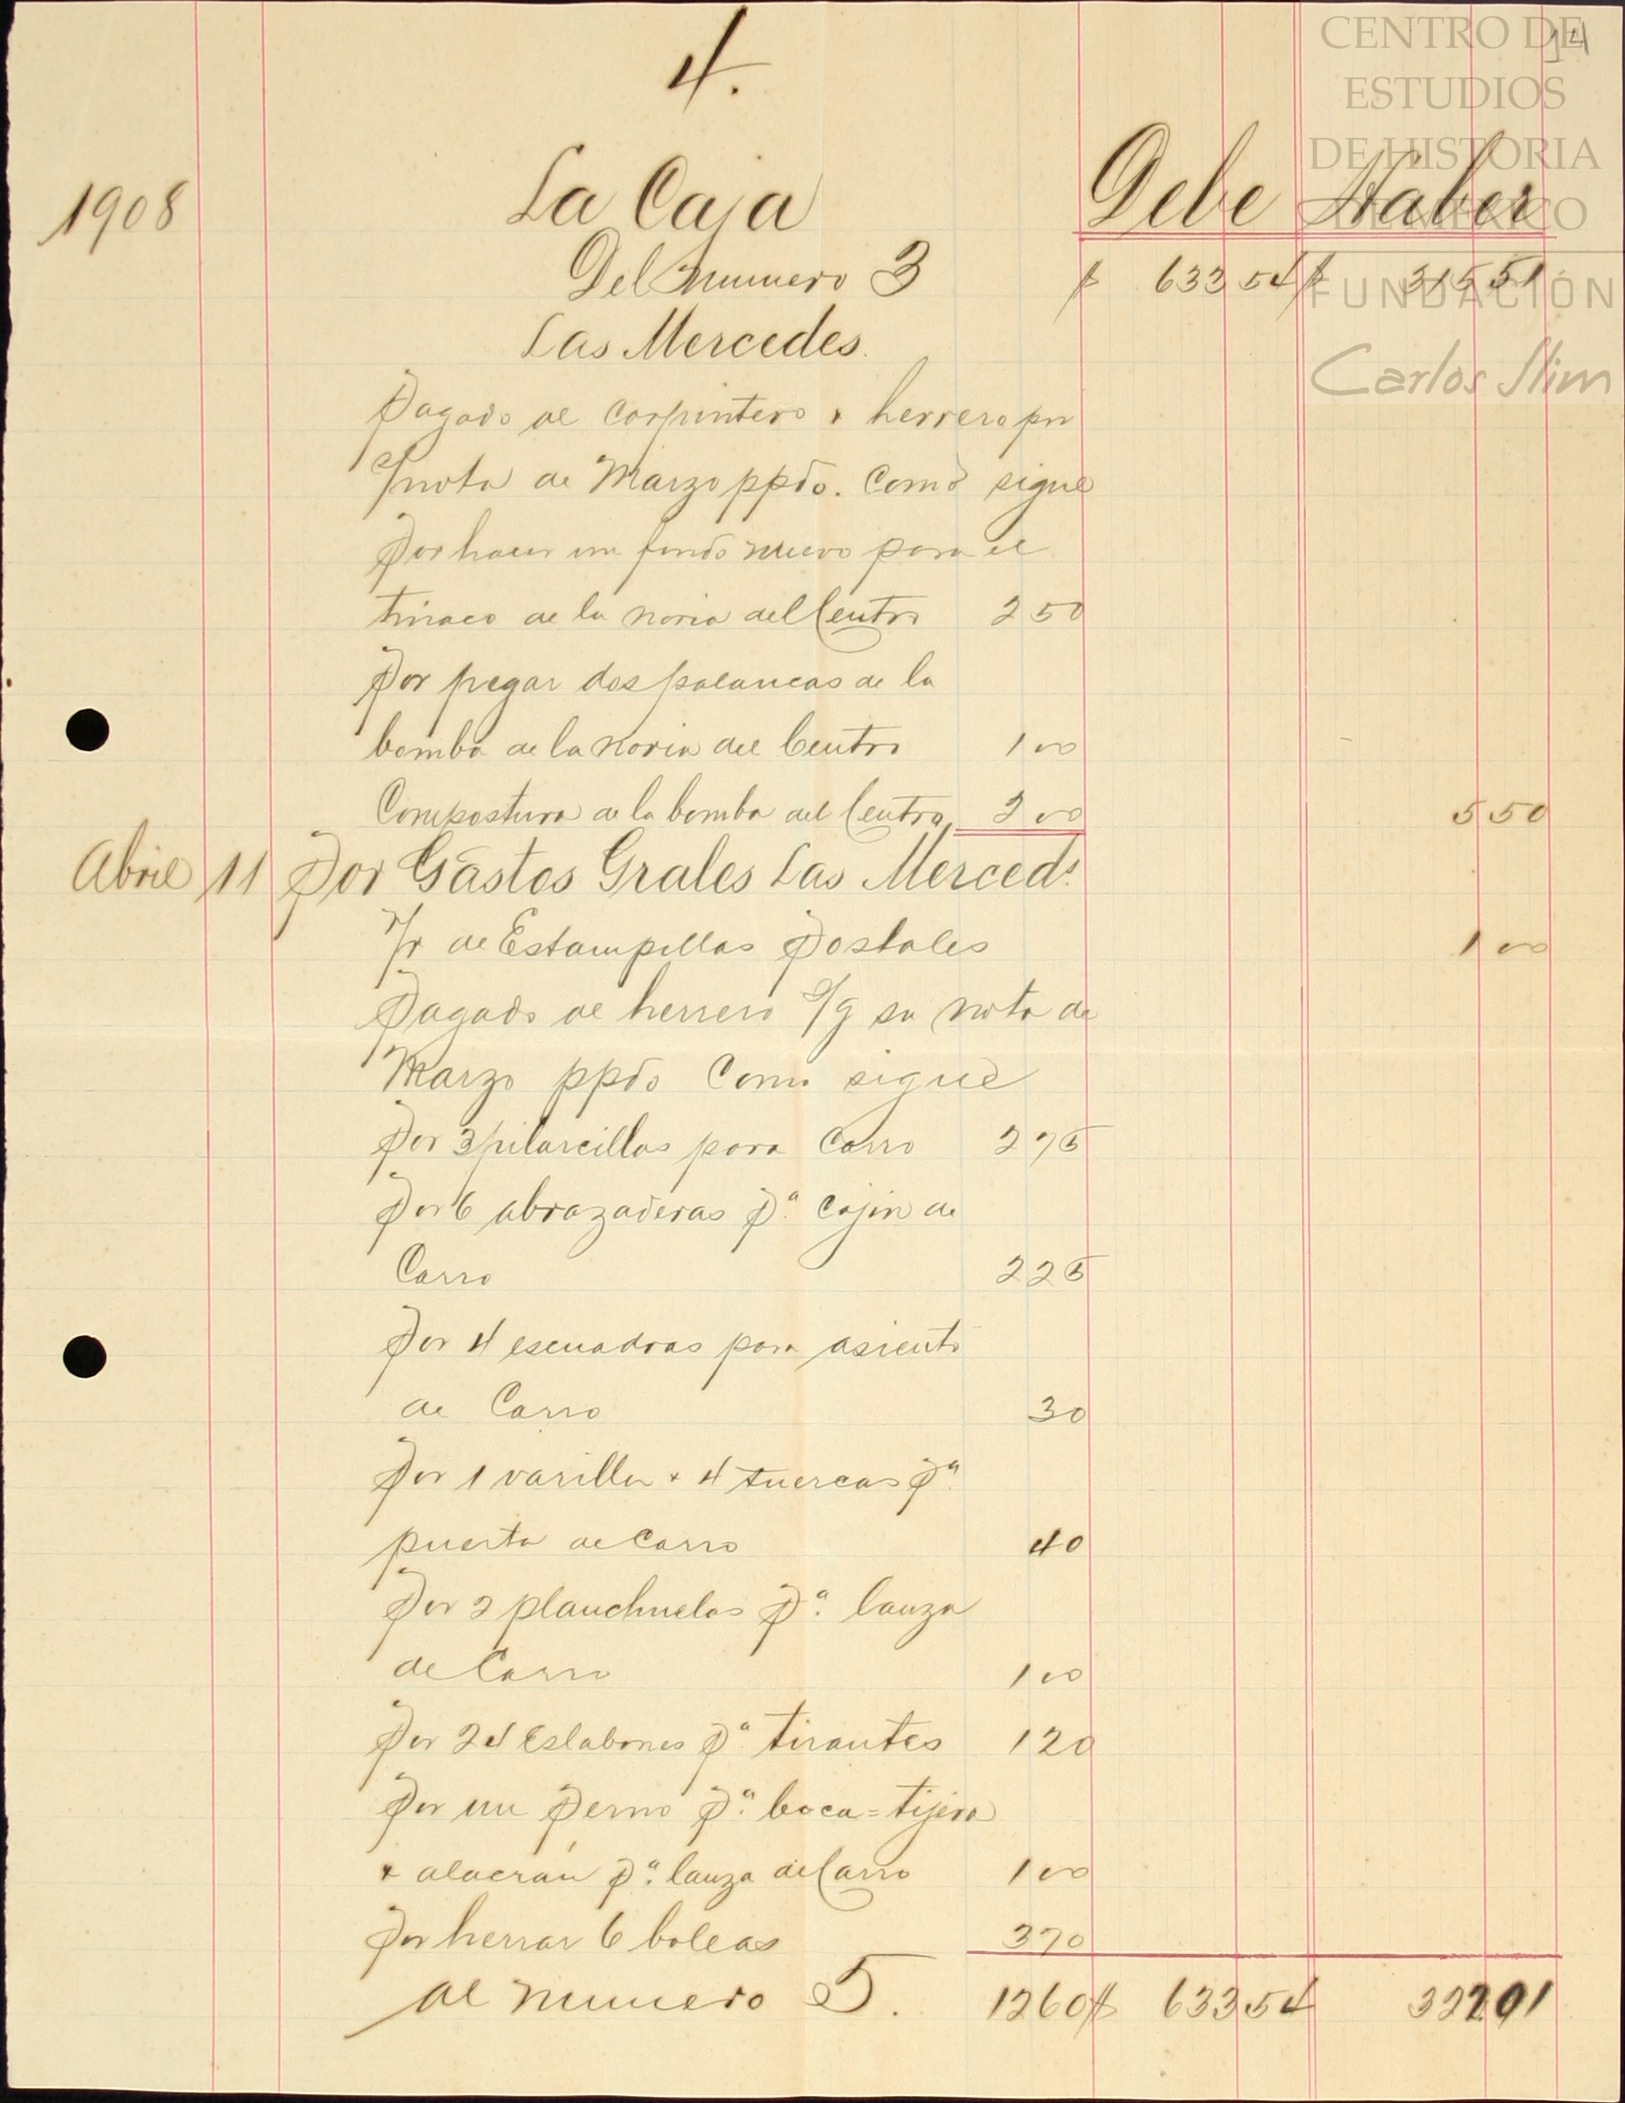 4.
14
CENTRO DE
ESTUDIOS
DE HISTORIA
DE MÉXICO
FUNDACIÓN
Carlos Slim
1908 La Caja Debe Haber
Del numero 3 $ 633 54 $ 315 51
Las Mercedes.
Pagado al carpintero + herrero pr
s/nota de Marzo ppdo. Como sigue
Por hacer un fondo nuevo para el
tinaco de la noria del Centro 2 50
Por pegar dos palancas de la
bomba de la noria del Centro 1 00
Compostura de la bomba del Centro 2 00 5 50
Abril 11 Por Gastos Grales Las Merceds.
de Estampillas Postales 1 00
Pagado al herrero s/g su nota de
Marzo ppdo Como sigue
Por 3 pilarcillos para Carro 2 75
Por 6 abrazaderas pa. cojin de
Carro 2 25
Por 4 escuadras para asiento
de Carro 30
Por 1 varilla + 4 tuercas pa.
puerta de Carro 40
Por 2 planchuelas pa. lanza
de Carro 1 00
Por 24 Eslabones pa. tirantes 1 20
Por un Perno pa. boca=tijera
+ alacrán pa. lanza de Carro 1 00
Por herrar 6 boleas 3 70
Al numero 5. 12 60 $ 633 54 322 01